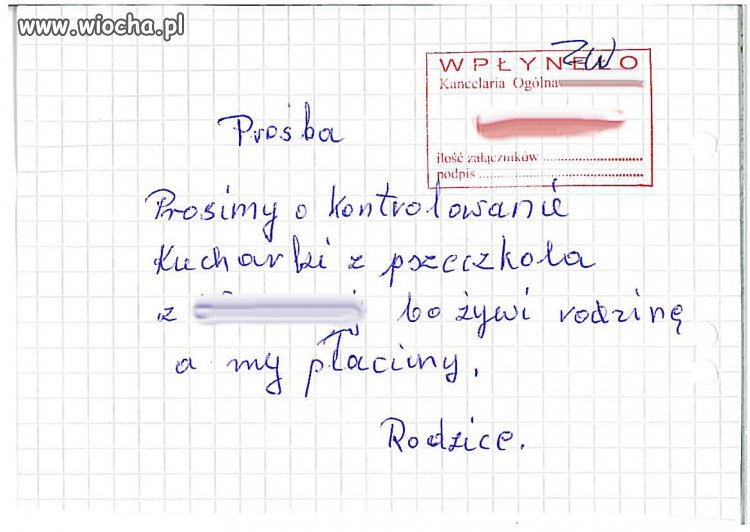 www.wiocha.pl
WPŁYNEŁO
Kancelaria Ogólna
ilość załączników
podpis
Prośba
Prosimy o kontrolowanie
Kucharki z pszeczkola
z bo żywi rodzinę
a my płacimy.
Rodzice.